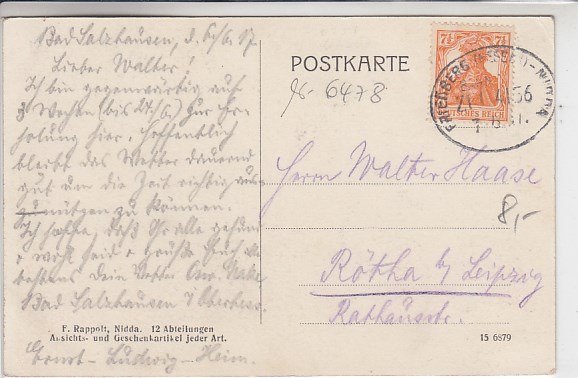 Bad Salzhausen, d. 6/6. 17.
Lieber Walter!
Ich bin gegenwärtig auf
3 Wochen (bis 24/6.) zur Er-
holung hier. Hoffentlich
bleibt das Wetter dauernd
gut um die Zeit richtig aus-
zunützen zu können.
Ich hoffe, daß Ihr alle gesund
+ wohl seid + grüße Euch alle
bestens Dein Vetter
Bad Salzhausen i/ Oberhess.
F. Rappolt, Nidda. 12 Abteilungen
Ansichts- und Geschenkartikel jeder Art.
Ernst-Ludwig-Heim.
POSTKARTE
6478
7½ 7½
DEUTSCHES REICH
FRIEDBERG (HESSEN)-NIDDA
Herrn Walter Haase
8,-
Rötha b/ Leipzig
Rathausstr.
15 6879